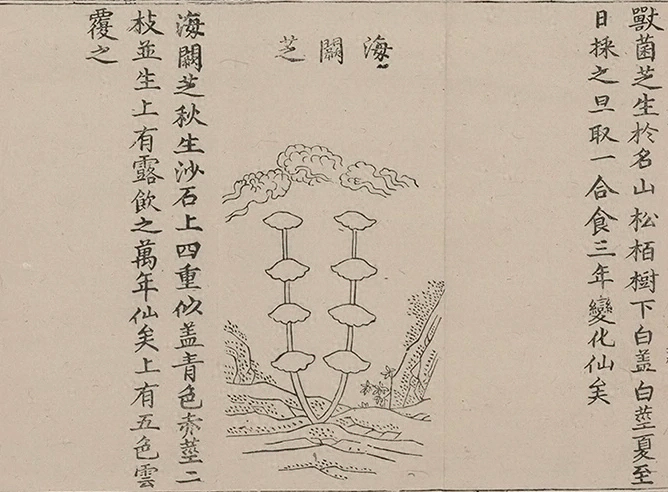 獸菌芝生於名山松栢樹下白盖白莖夏至
日採之旦取一合食三年變化仙矣
海闊芝
海闊芝秋生沙石上四重似盖青色赤莖二
枝並生上有露飲之萬年仙矣上有五色雲
覆之